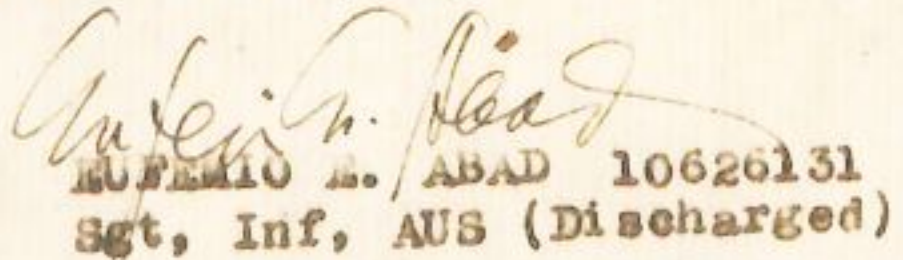 Eufemio M. Abad
EUFEMIO M. ABAD 10626131
Sgt, Inf, AUS (Discharged)